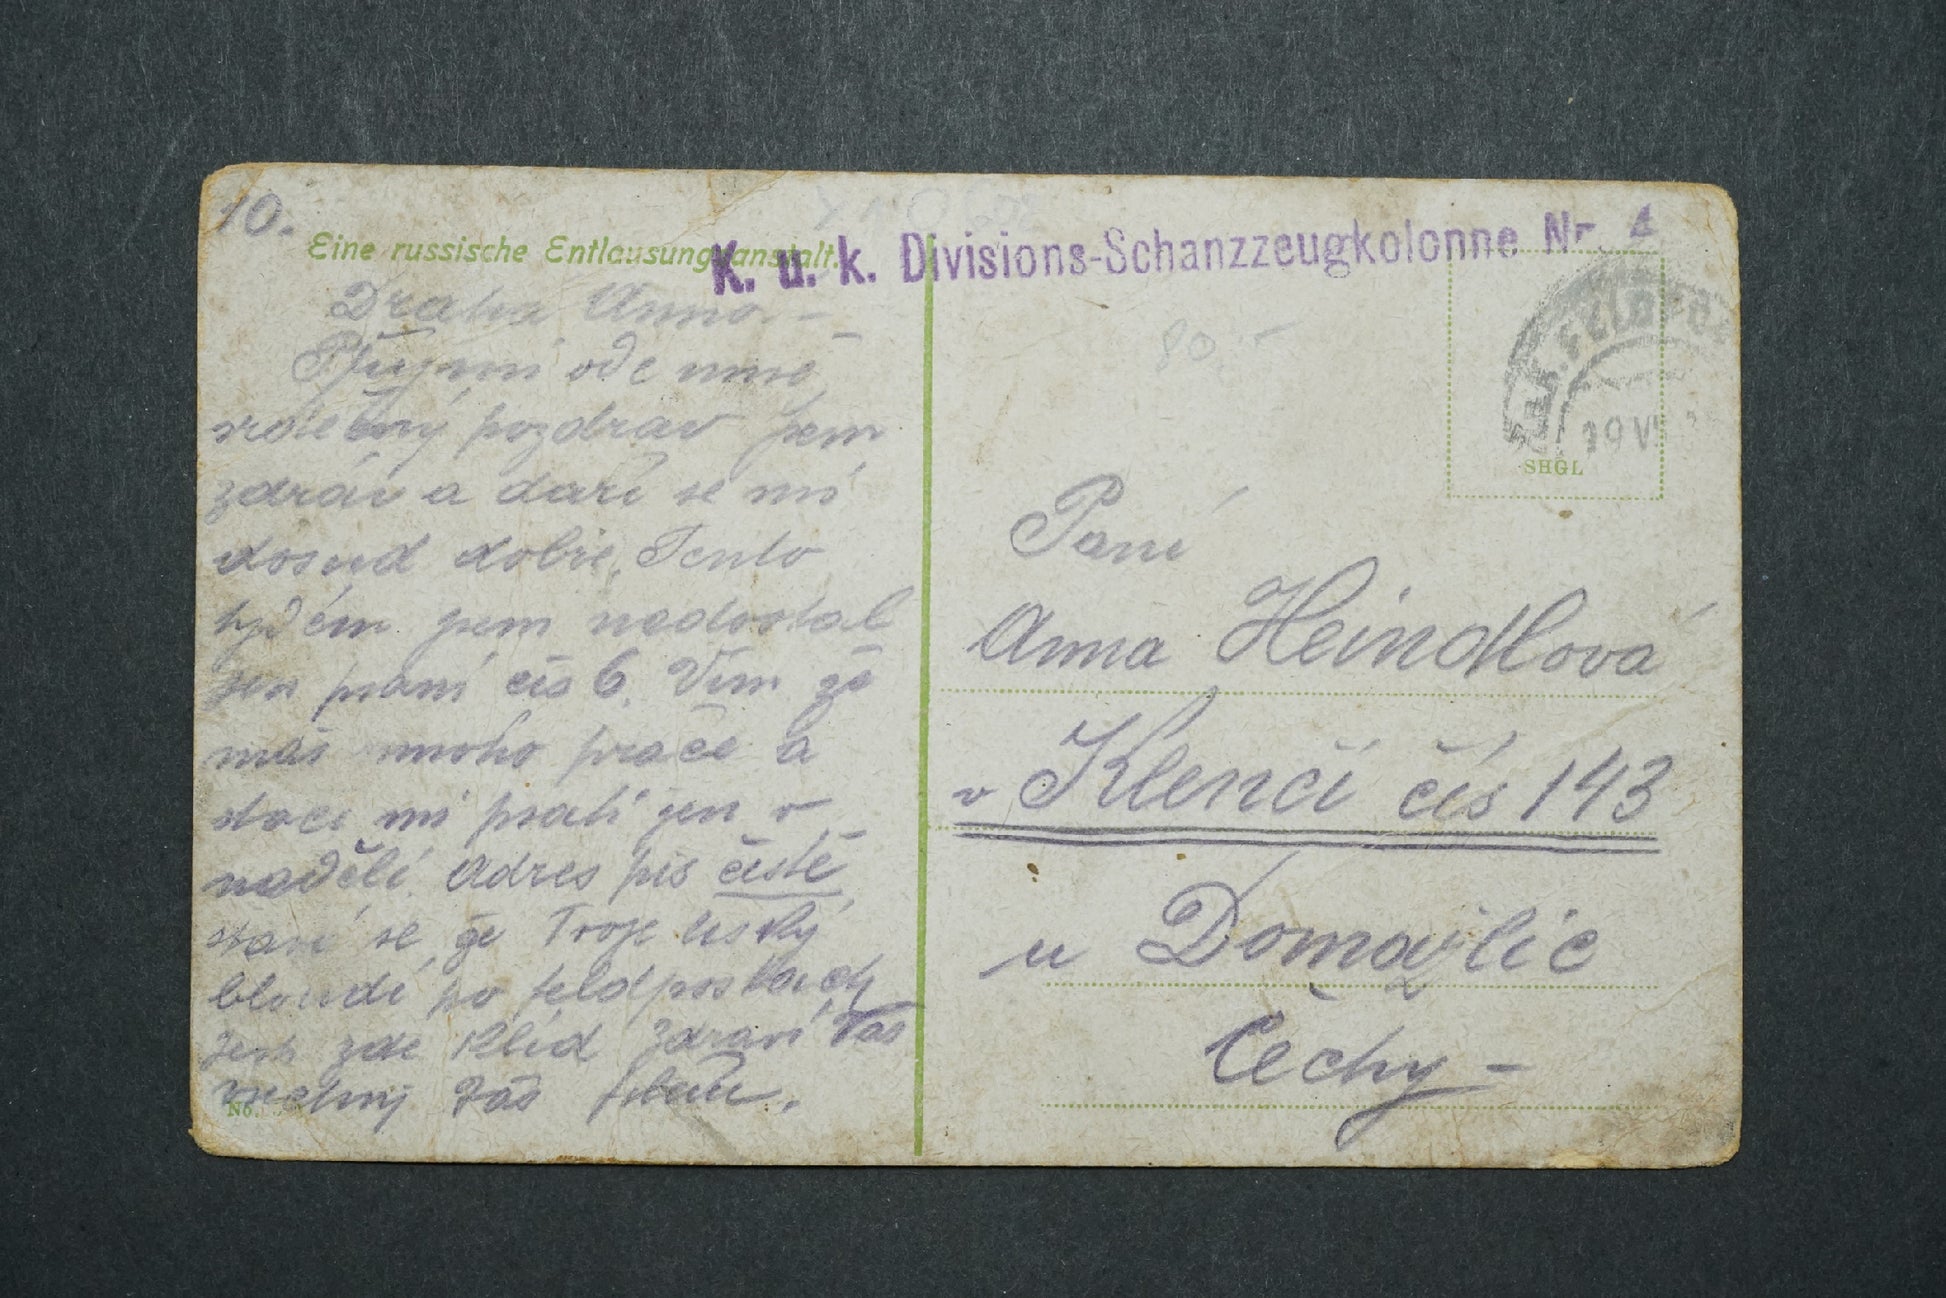 10.
Eine russische Entlausungsanstalt.
K. u. k. Divisions-Schanzzeugkolonne Nr. 4
Drahá Anno. –
Přijmi ode mně
srdečný pozdrav jsem
zdráv a daří se mi
dosud dobře. Tento
týden jsem nedostal
jen psaní čís 6. Vím že
máš mnoho práce a
stačí mi psáti jen v
neděli. Adres piš čistě
stává se že Tvoje lístky
bloudí po feldpostách
Jest zde klid Zdraví Vás
všechny Váš
No.
80.-
K.u.K. FELDPOS
19 VI
SHGL
Paní
Anna Heindlová
v Klenčí čís 143
u Domažlic
Čechy –